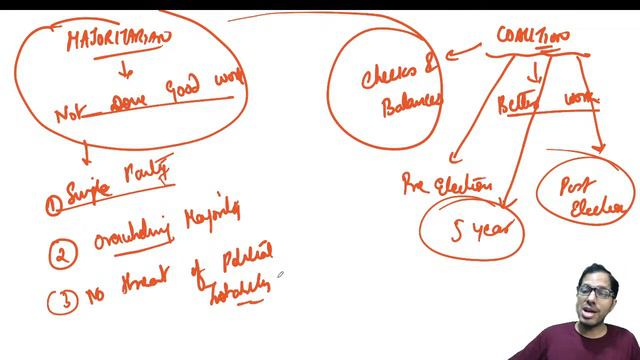 MAJORITARIAN
Not Done Good work
① Single Party
② Overwhelming Majority
③ No threat of Political
Instability
Checks &
Balances
COALITION
Better work
Pre Election
5 year
Post
Election